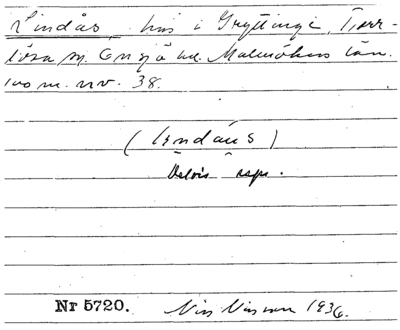 Lindås, hus i Gryttinge, Tierr-
lösa sn. Onsjö hd. Malmöhus län.
100 m. nv. 38.
(lindáus)
Delvis saml.
Nr 5720.
Nils Nilsson 1936.